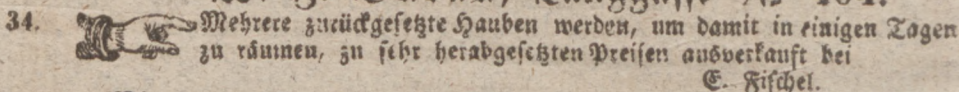 34. Mehrere zurückgesetzte Hauben werden, um damit in einigen Tagen
zu räumen, zu sehr herabgesetzten Preisen ausverkauft bei
E. Fischel.